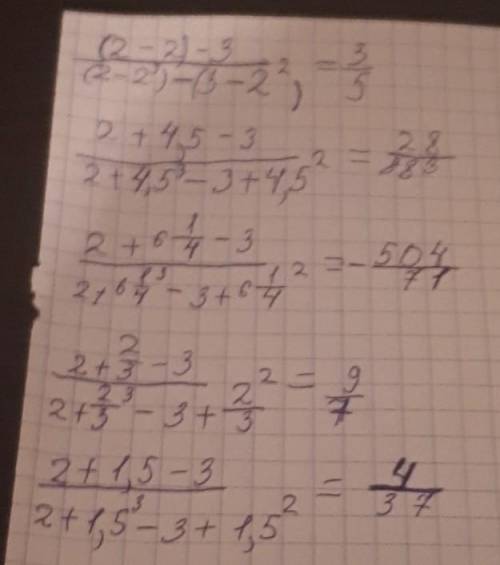 (2-2)-3 / (2-2³)-(3-2²) = 3/5
2+4,5-3 / 2+4,5³-3+4,5² = 28/883
2+6 1/4-3 / 2+6 1/4³-3+6 1/4² = -504/71
2+2/3-3 / 2+2/3³-3+2/3² = 9/7
2+1,5-3 / 2+1,5³-3+1,5² = 4/37